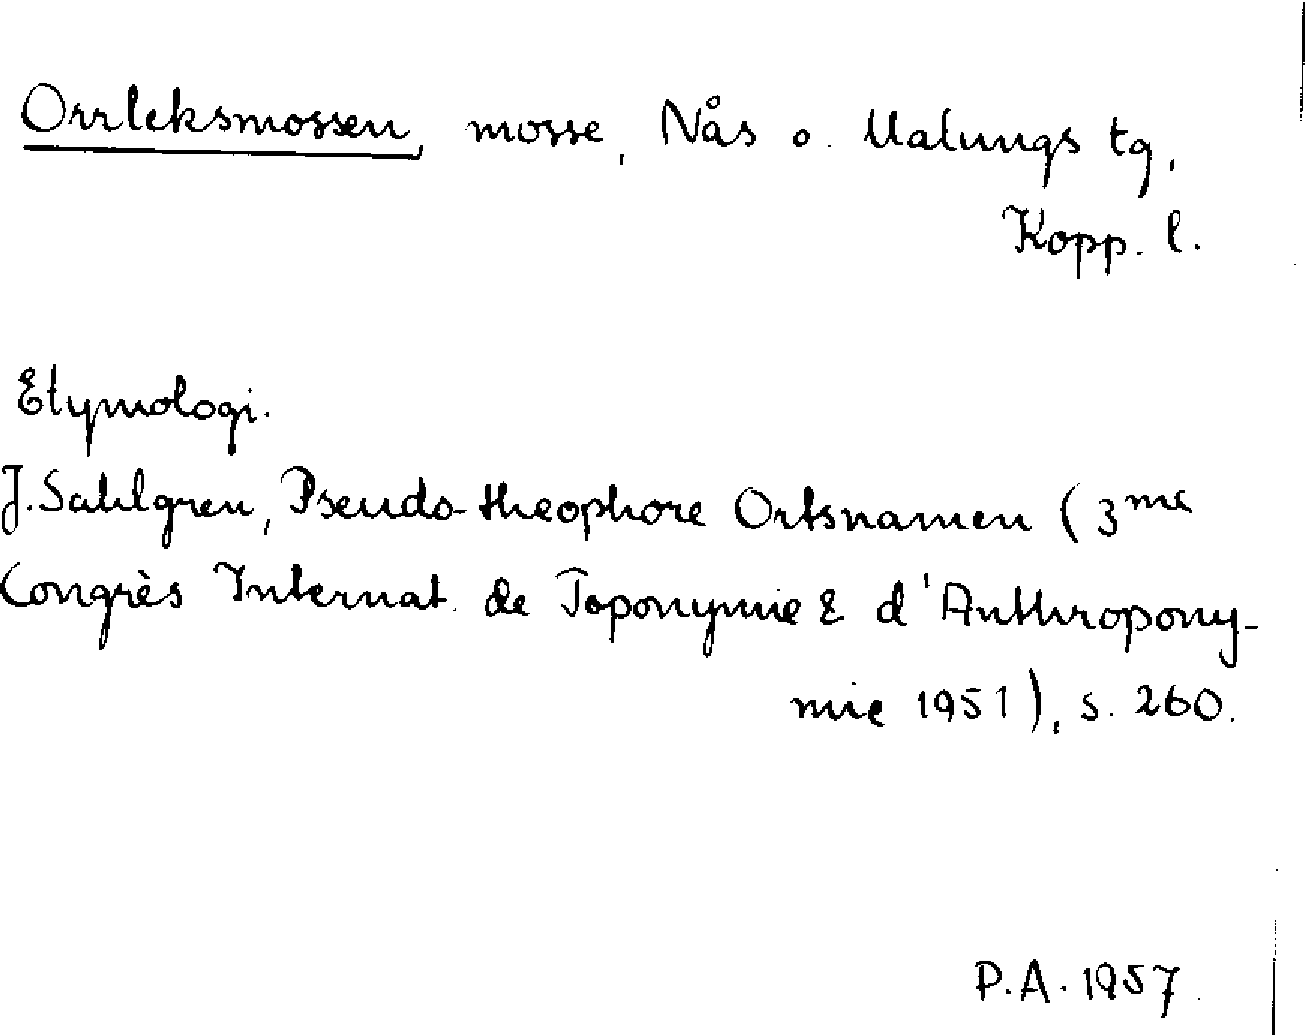 Orrleksmossen, mosse, Nås o. Malungs tg,
Kopp. l.
Etymologi.
J. Sahlgren, Pseudo-theophore Ortsnamen (3me
Congrès Internat. de Toponymie & d'Anthropony-
mie 1951), s. 260.
P.A. 1957.